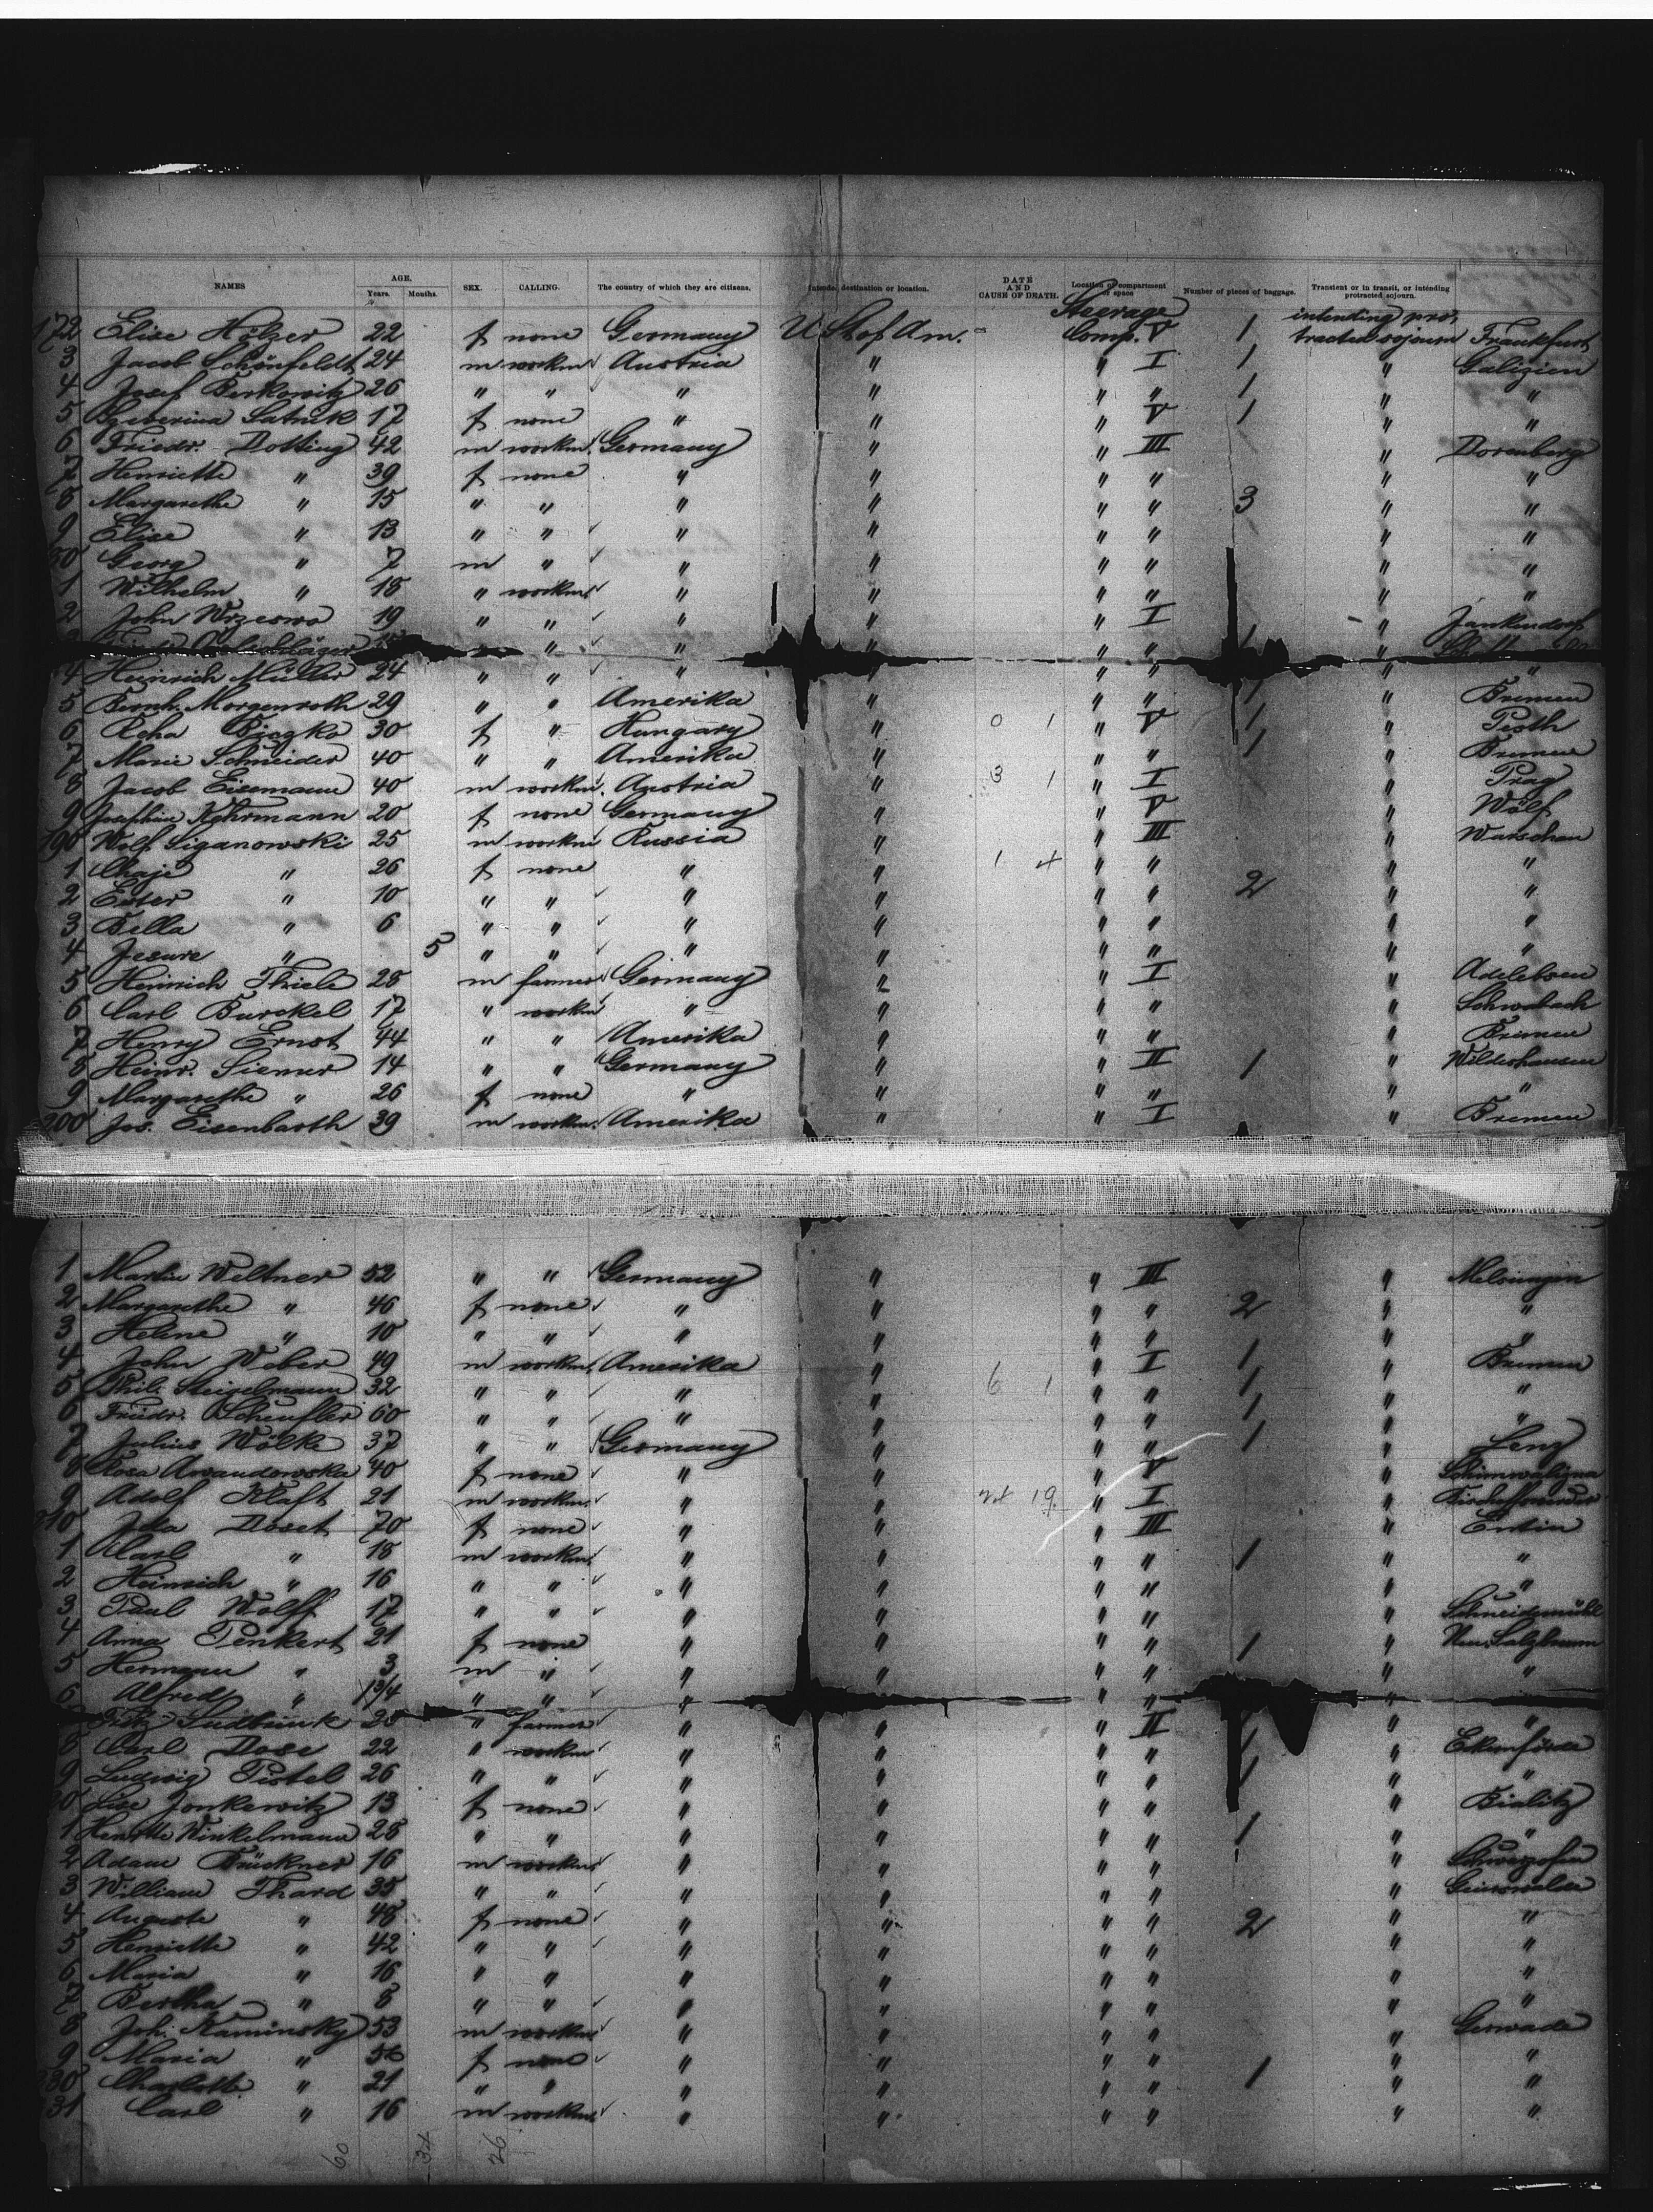 NAMES AGE. Years. Months. SEX. CALLING. The country of which they are citizens. Intended destination or location. DATE AND CAUSE OF DEATH. Location of compartment or space Number of pieces of baggage. Transient or in transit, or intending protracted sojourn.
172 Elise Hölzer 22 f none Germany U St of Am. Steerage Comp. V 1 intending protracted sojourn Frankfurt
3 Jacob Schönfeldt 24 m workm. Austria " " I 1 " Galizien
4 Josef Berkowitz 26 " " " " " " 1 " "
5 Satnik 17 f none " " " V 1 " "
6 Friedr. Dotting 42 m workm. Germany " " III " Dorenberg
7 Henriette " 39 f none " " " " " "
8 Margarethe " 15 " " " " " " 3 " "
9 Elise " 13 " " " " " " " "
80 Georg " 7 m " " " " " " "
1 Wilhelm " 18 " workm. " " " " " "
2 John Wrzeswo 19 " " " " " I " Jankendorf
" " " " " "
4 Heinrich Müller 24 " " " " " " " "
5 Bernh. Morgenroth 29 " " Amerika " " " 1 " Bremen
6 Reha Biegko 30 f " Hungary " 0 1 " V 1 " Pesth
7 Marie Schneider 40 " " Amerika " " " 1 " Bremen
8 Jacob Eisemann 40 m workm. Austria " 3 1 " I " Prag
9 Josephine Kehrmann 20 f none Germany " " V " Wölf
190 Wolf Siganowski 25 m workm Russia " " III " Warschau
1 Chaje " 26 f none " " 1 4 " " " "
2 Ester " 10 " " " " " " 2 " "
3 Bella " 6 " " " " " " " "
4 Jesure " 5 " " " " " " " "
5 Heinrich Thiele 28 m farmer Germany " " I " Adelebsen
6 Carl Burckel 17 " workm " " " " " Schwabach
7 Henry Ernst 44 " " Amerika " " " " Bremen
8 Heinr. Siemer 14 " " Germany " " II 1 " Wildeshausen
9 Margarethe " 26 f none " " " " " "
200 Jos. Eisenbarth 39 m workm. Amerika " " I " Bremen
1 Martin Weltner 52 " " Germany " " III " Melsungen
2 Margarethe " 46 f none " " " " 2 " "
3 Helene " 10 " " " " " " " "
4 John Weber 49 m workm. Amerika " " I 1 " Bremen
5 Phil. Steigelmann 32 " " " " 6 1 " " 1 " "
6 Friedr. Scheufler 60 " " " " " " 1 " "
7 Julius Wölke 37 " " Germany " " " 1 " Lenz
8 Rosa 40 f none " " " V "
9 Adolf Klaft 21 m workm. " " 19 " I "
210 Ida Doset 70 f none " " " III " Eutin
1 Carl " 18 m workm. " " " " 1 " "
2 Heinrich " 16 " " " " " " " "
3 Paul Wolff 17 " " " " " " " Schneidemühl
4 Anna Penkert 21 f none " " " " 1 " Neu Salzbrunn
5 Hermann " 3 m " " " " " " "
6 Alfred " 1 3/4 " " " " " " "
Fritz Sudbrink 28 " farmer " " " II 1 " "
8 Carl Dose 22 " workm " " " " 1 " Ekernförde
9 Ludwig Pistel 26 " " " " " " 1 " "
20 Lise Jonkewitz 13 f none " " " " " Bialitz
1 Henrtte Winkelmann 28 " " " " " " 1 " "
2 Adam Brückner 16 m workm. " " " " "
3 William Thard 35 " " " " " " "
4 Auguste " 48 f none " " " " 2 " "
5 Henriette " 42 " " " " " " " "
6 Maria " 16 " " " " " " " "
7 Bertha " 8 " " " " " " " "
8 Joh. Kaminsky 53 m workm. " " " " " Gerwade
9 Maria " f none " " " " " "
230 Charlotte " 21 " " " " " " 1 " "
31 Carl " 16 m workm. " " " " " "
60 34 26